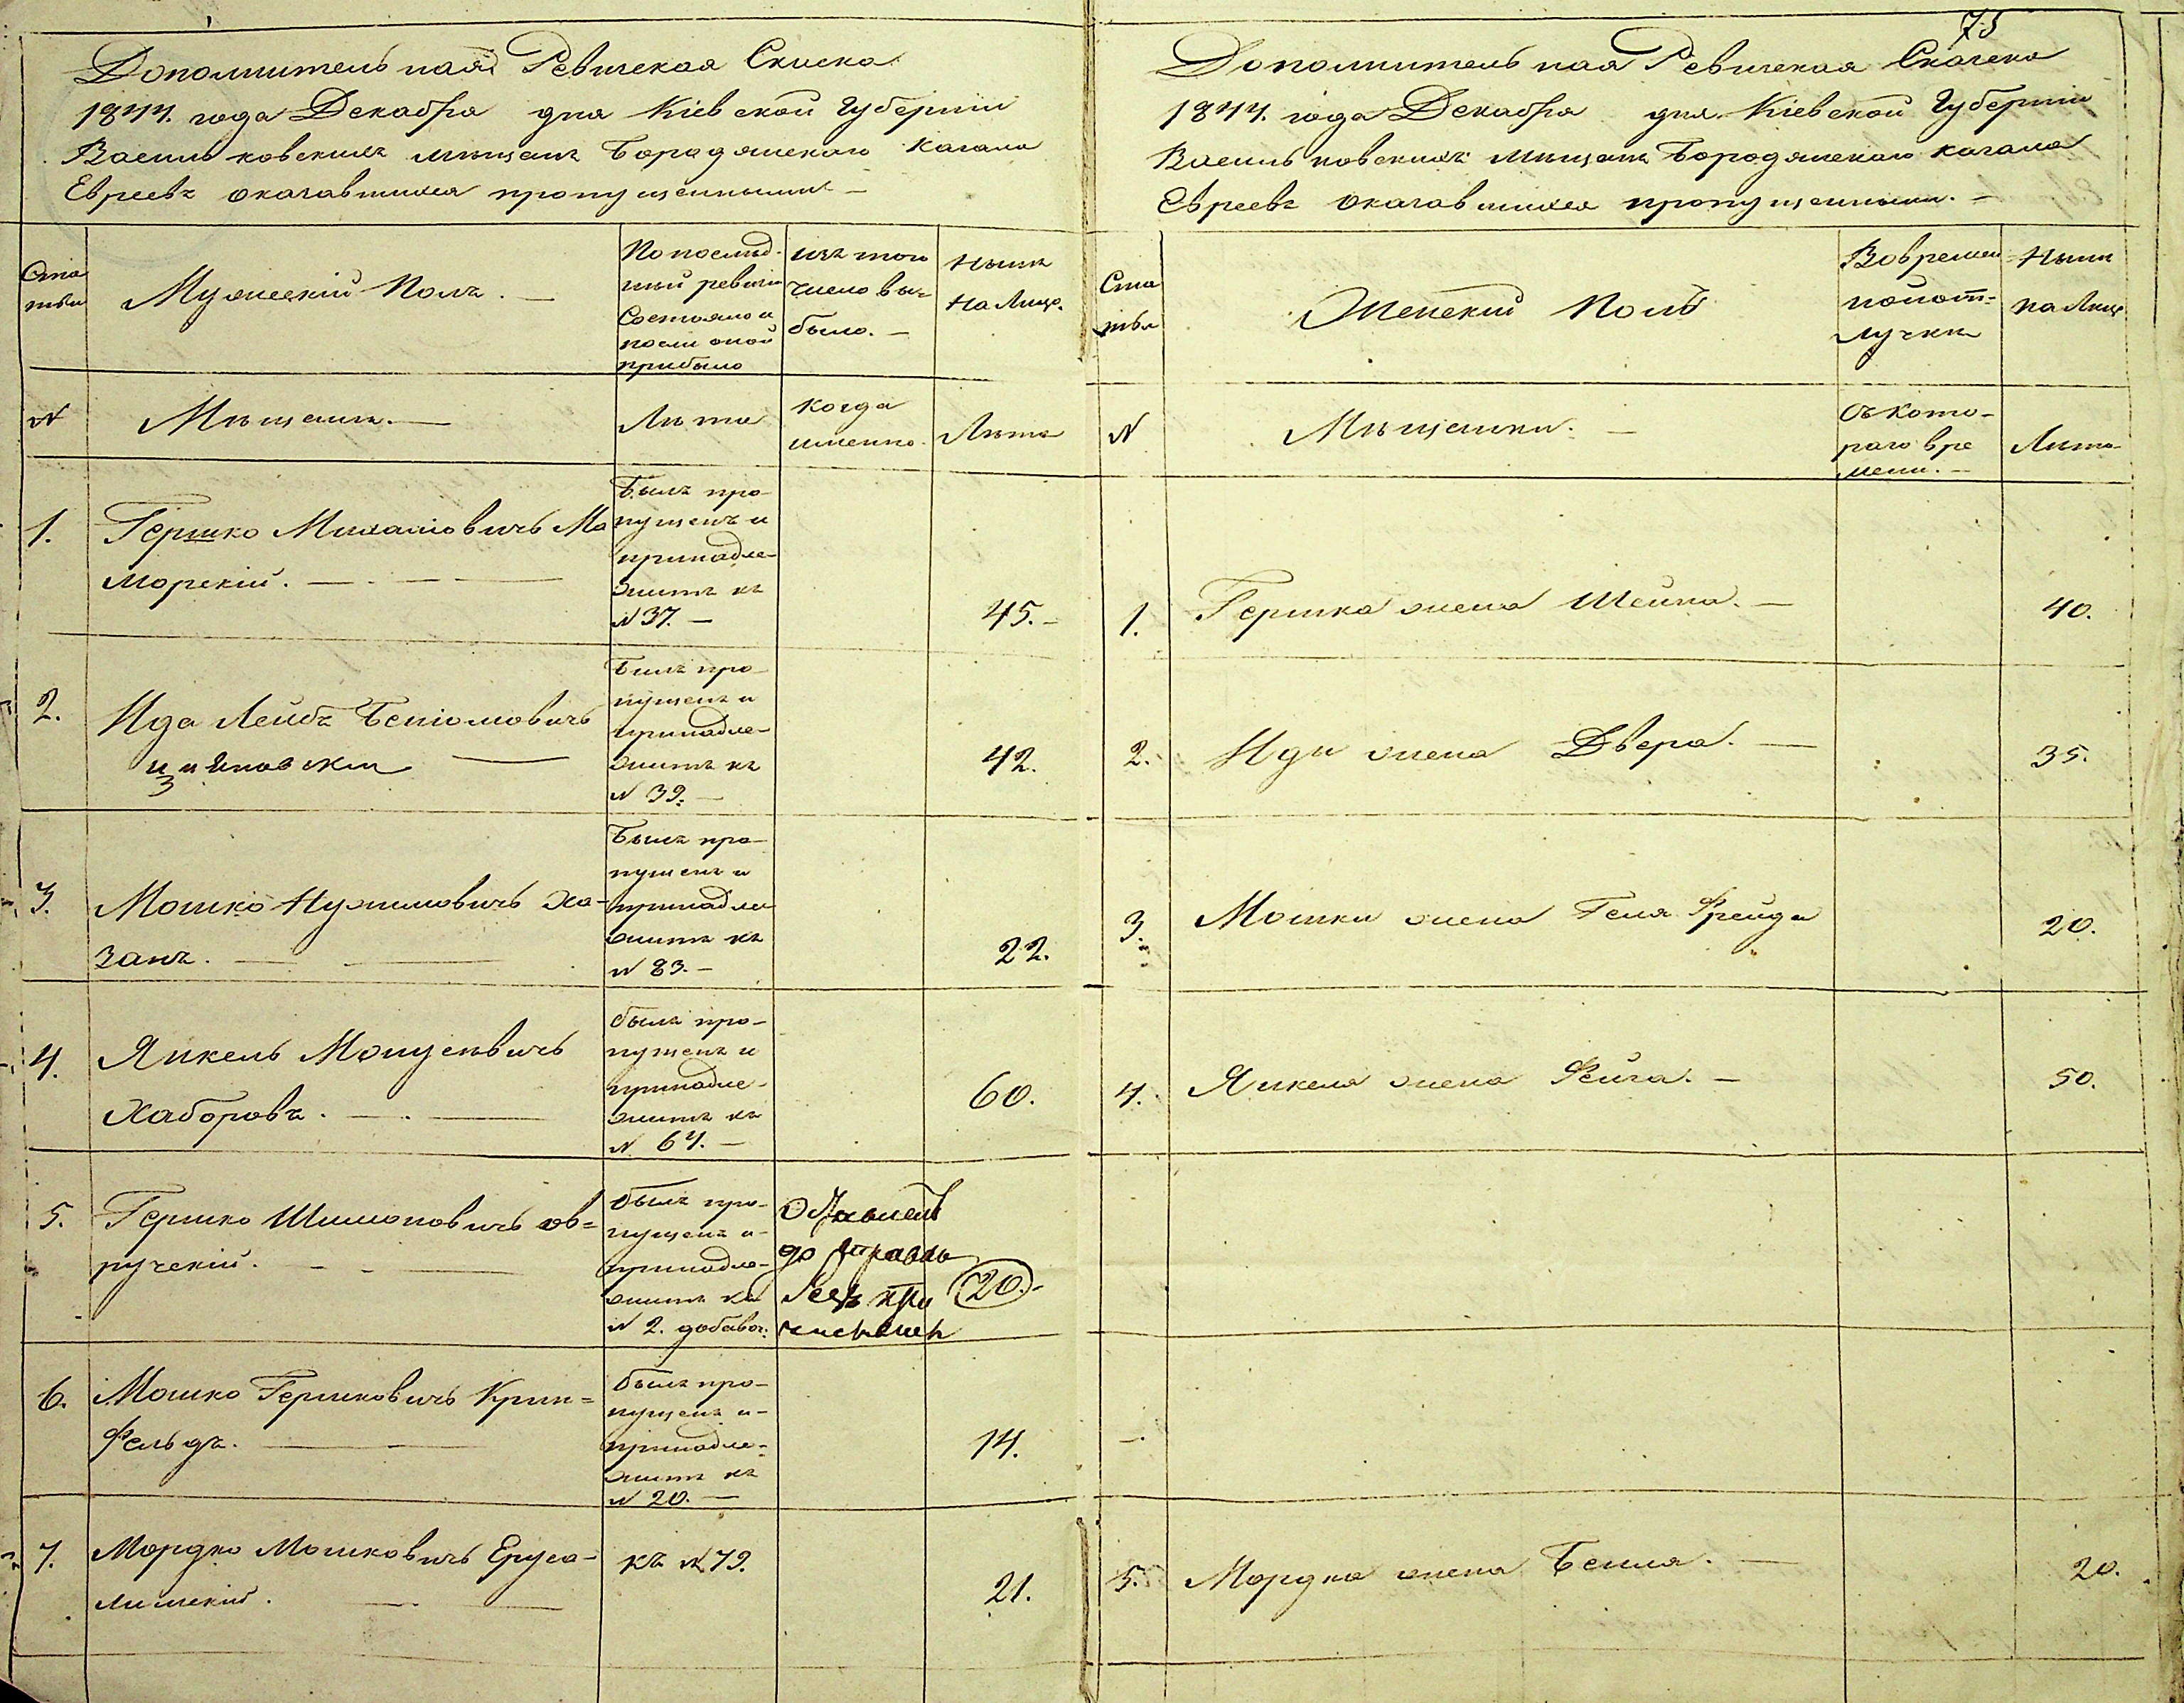 Дополнительная Ревизская Сказка
1844. года Декабря дня Кіевской Губерніи
Васильковскихъ мѣщанъ Бородянскаго кагала
Евреевъ оказавшихся пропущенными –
Ста
тьи
Мужескій Полъ. –
По послѣд-
ней ревизіи
Состояло и
послѣ оной
прибыло
изъ того
числа вы=
было. –
Нынѣ
На Лице.
N
Мѣщане. –
Лѣта
когда
именно.
Лѣта
1.
Гершко Михайловичъ Ма
морскій. –
Былъ про-
пущенъ и
принадле-
житъ къ
N 37. –
45. –
2.
Ида Лейбъ Беніомовичъ
Былъ про-
пущенъ и
принадле-
житъ къ
N 39. –
42.
3.
Мошко Нухимовичъ Ха-
занъ. –
Былъ про-
пущенъ и
принадле
житъ къ
N 83. –
22.
4.
Янкель Мошуевичъ
Хаборовъ. –
былъ про-
пущенъ и
принадле-
житъ къ
N 64. –
60.
5.
Гершко Шимоновичъ ов=
ручскій. –
былъ про-
пущенъ и-
принадле-
житъ къ
N 2. добавоч:
до
при
численъ
20. –
6.
Мошко Гершковичъ Крин=
фельдъ. –
былъ про-
пущенъ и-
принадле-
житъ къ
N 20. –
14.
7.
Мордко Мошковичъ Еруса-
лимскій. –
къ N 79.
21.
75
Дополнительная Ревизская Сказка
1844. года Декабря дня Кіевской Губерніи
Васильковскихъ мѣщанъ Бородянскаго кагала
Евреевъ оказавшихся пропущенными. –
Ста
тьи
Женскій Полъ
Во времен
ной от=
лучки
Нынѣ
на Лице
N
Мѣщанки. –
Съ кото-
раго вре
мени. –
Лѣта
1.
Гершка жена Шейна. –
40.
2.
Иды жена Двера. –
35.
3.
Мошки жена Геля Фрейда
20.
4.
Янкеля жена Фейга. –
50.
–.
5.
Мордка жена Бейля. –
20.